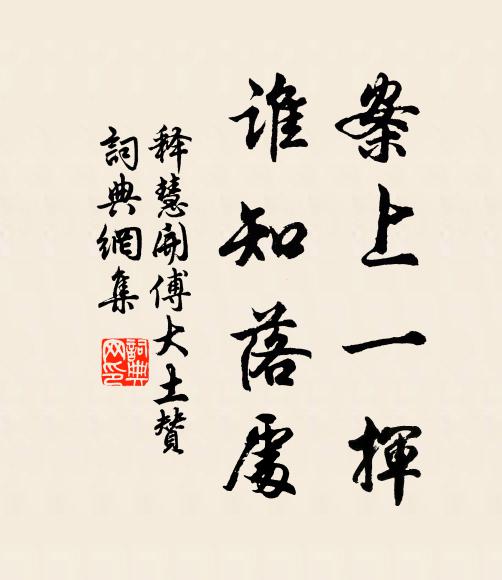 案上一揮
誰知落處
释慧開傅大士贊
詞典網集
詞典網印